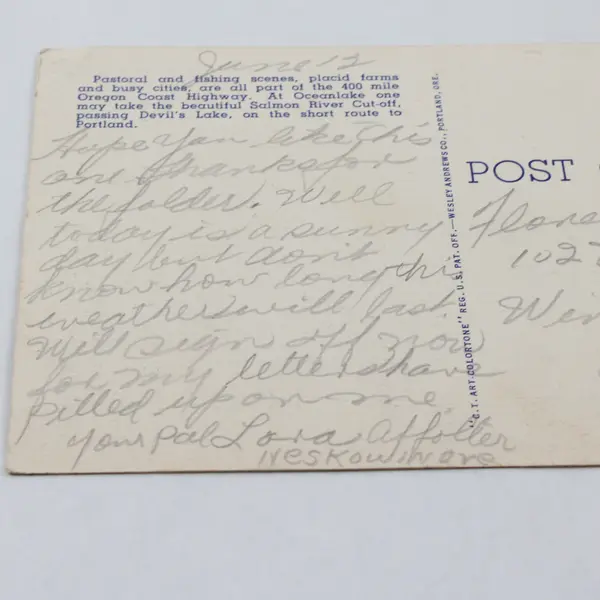 June 12
Pastoral and fishing scenes, placid farms
and busy cities, are all part of the 400 mile
Oregon Coast Highway. At Oceanlake one
may take the beautiful Salmon River Cut-off,
passing Devil's Lake, on the short route to
Portland.
Hope you like this
one thanks for
the folder. Well
today is a sunny
day but dont
know how long this
weather will last.
Will sign off now
for my letters have
pilled up on me
your pal Lora Affolter
Neskowin ore
"C.T. ART-COLORTONE" REG. U.S. PAT. OFF.—WESLEY ANDREWS CO., PORTLAND, ORE.
POST
Flore
1027
Win